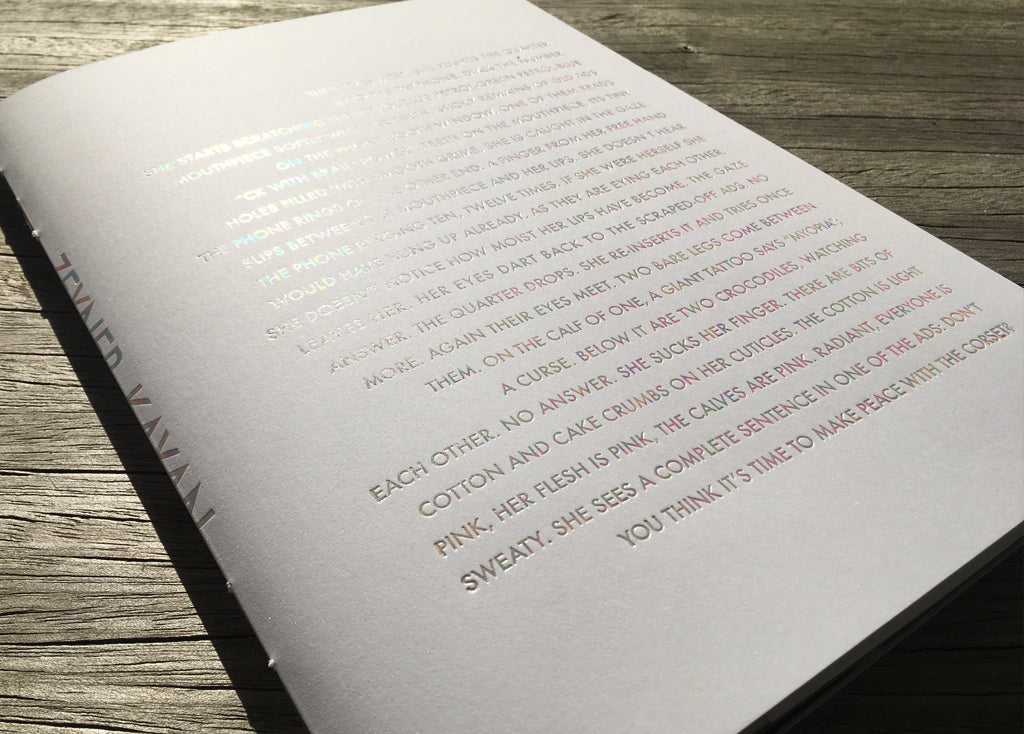 THE QUARTER
PHONE, OVER THE NUMBER
PETROL BLUE
SHE STARTS SCRATCHING STICKY REMAINS OF OLD ADS
MOUTHPIECE SOFTLY WINDOW, ONE OF THEM READS
ON THE TEETH ON THE MOUTHPIECE, ITS TINY
HOLES FILLED WITH MOUTH GRIME, SHE IS CAUGHT IN THE GAZE
THE PHONE RINGS OTHER END. A FINGER FROM HER FREE HAND
SLIPS BETWEEN THE MOUTHPIECE AND HER LIPS. SHE DOESN'T HEAR
THE PHONE RINGING TEN, TWELVE TIMES. IF SHE WERE HERSELF SHE
WOULD HAVE HUNG UP ALREADY. AS THEY ARE EYING EACH OTHER,
SHE DOESN'T NOTICE HOW MOIST HER LIPS HAVE BECOME. THE GAZE
LEAVES HER. HER EYES DART BACK TO THE SCRAPED-OFF ADS. NO
ANSWER. THE QUARTER DROPS. SHE REINSERTS IT AND TRIES ONCE
MORE. AGAIN THEIR EYES MEET, TWO BARE LEGS COME BETWEEN
THEM. ON THE CALF OF ONE, A GIANT TATTOO SAYS "MYOPIA",
A CURSE. BELOW IT ARE TWO CROCODILES, WATCHING
EACH OTHER. NO ANSWER. SHE SUCKS HER FINGER. THERE ARE BITS OF
COTTON AND CAKE CRUMBS ON HER CUTICLES. THE COTTON IS LIGHT
PINK, HER FLESH IS PINK, THE CALVES ARE PINK. RADIANT, EVERYONE IS
SWEATY. SHE SEES A COMPLETE SENTENCE IN ONE OF THE ADS: DON'T
YOU THINK IT'S TIME TO MAKE PEACE WITH THE CORSET?